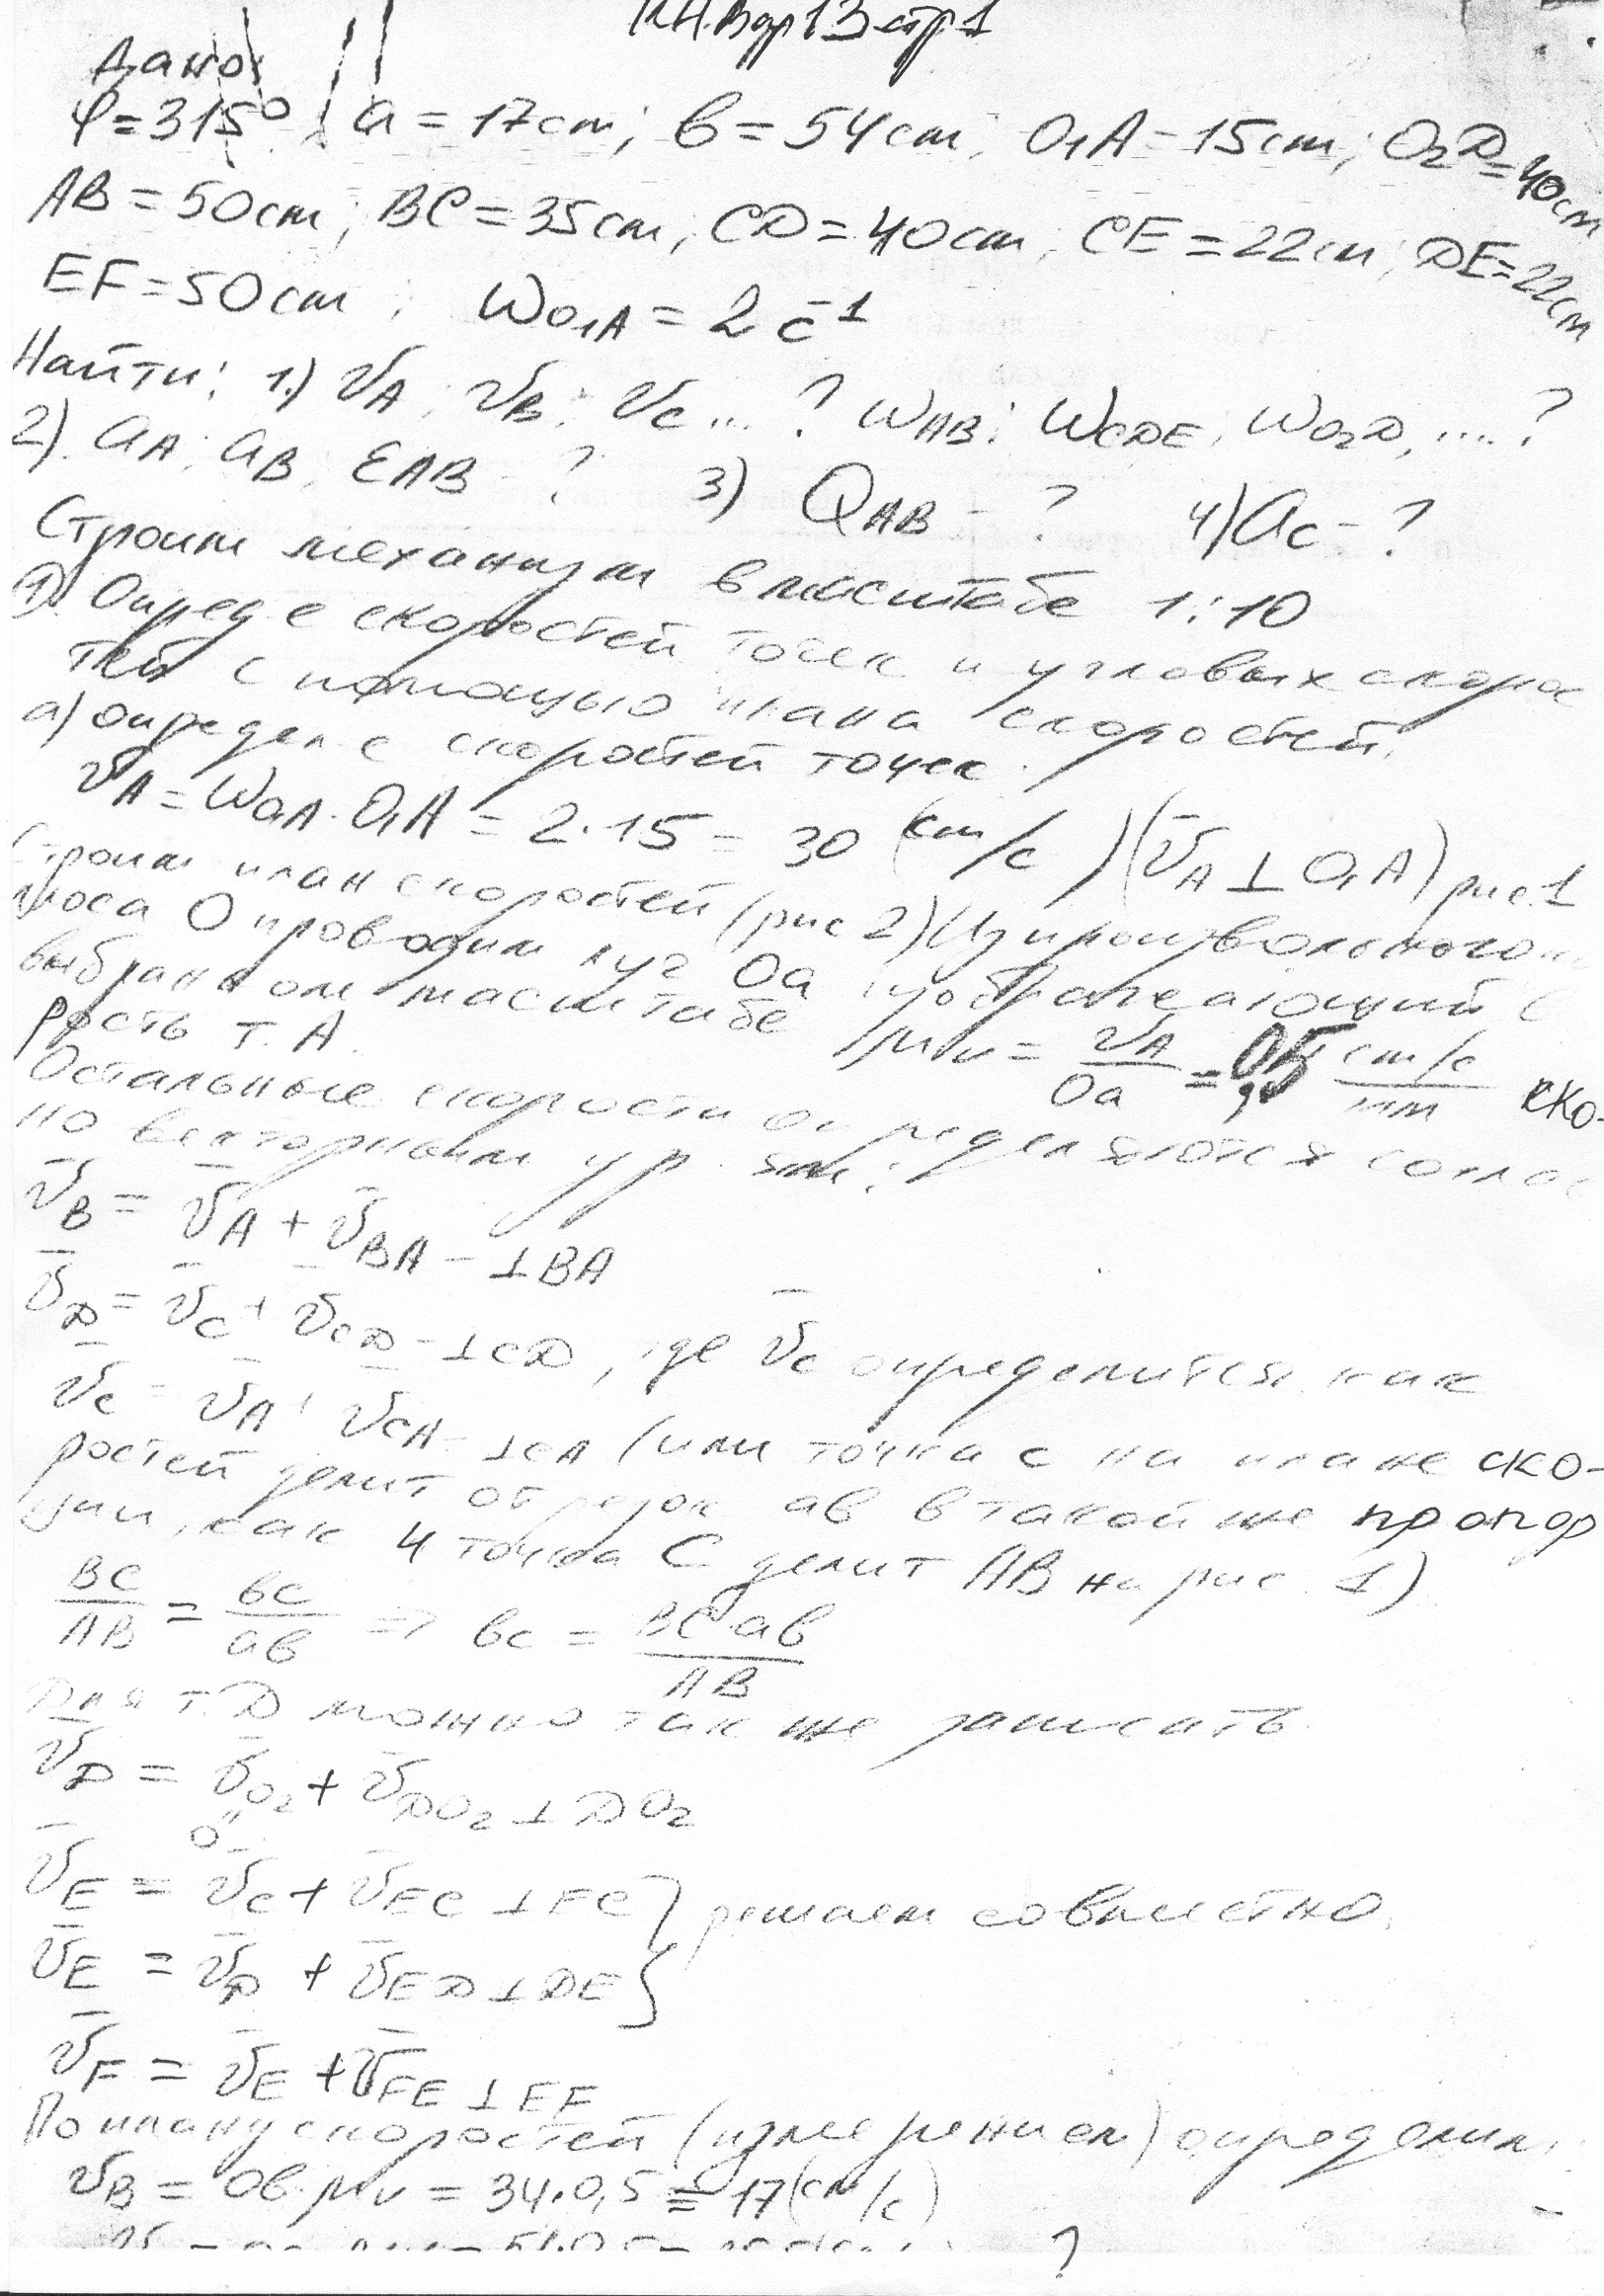 КН. Вар13 стр1
Дано
φ=315° ; a = 17cm; b = 54cm; O₁A = 15cm; O₂D=40cm
AB = 50cm; BC = 35cm; CD = 40cm; CE = 22cm; DE=22cm
EF = 50cm; ωO₁A = 2 c⁻¹
Найти: 1.) VA; VB; Vc... ? ωAB; ωCDE, ωO₂D, .... ?
2). aA; aB, εAB - ? 3) QAB - ? 4) ac - ?
Строим механизм в масштабе 1:10
1). Опред-е скоростей точек и угловых скорос
тей с помощью плана скоростей.
а) определ-е скоростей точек.
VA = ωO₁A · O₁A = 2·15 = 30 (cm/c) (V̄A ⊥ O₁A) рис.1
Строим план скоростей (рис 2) Из произвольного
полюса O проводим луч Oa изображающий с
выбранном масштабе μv = VA/Oa = 0,5 cm/c/мм ско-
рость т. A.
Остальные скорости определяются соглас
но векторным ур-ям:
V̄B = V̄A + V̄BA - ⊥BA
V̄D = V̄C + V̄CD - ⊥CD, где V̄c определится как
V̄c = V̄A + V̄CA - ⊥CA (или точка c на плане ско-
ростей делит отрезок ab в такой же пропор
ции, как и точка C делит AB на рис. 1)
BC/AB = bc/ab => bc = BC·ab/AB
Для т. D можно так же записать
V̄D = V̄O₂ + V̄DO₂ ⊥ DO₂
0
V̄E = V̄C + V̄EC ⊥ EC } решаем совместно.
V̄E = V̄D + V̄ED ⊥ DE }
V̄F = V̄E + V̄FE ⊥ EF
По плану скоростей (измерением) определим:
VB = Ob·μv = 34·0,5 = 17 (cm/c)
?